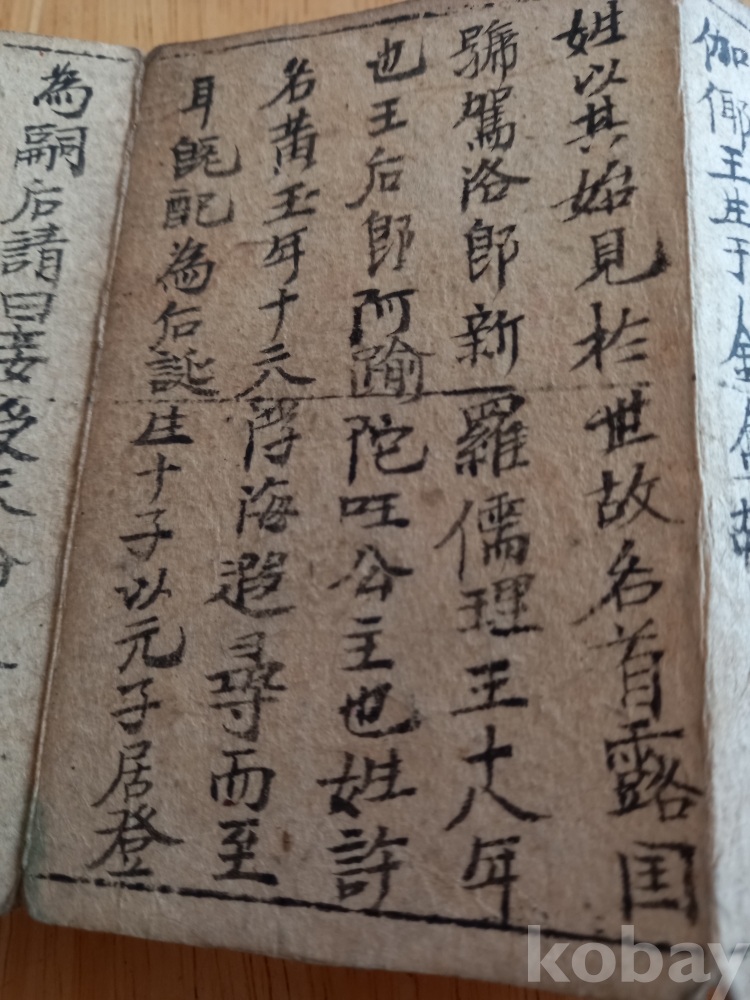 伽倻王生于金
姓以其始見於世故名首露囯
號駕洛即新羅儒理王十八年
也王后即阿踰陀旺公主也姓許
名黄玉年十六浮海遐尋而至
耳既配為后誕生十子以元子居登
為嗣后請曰妾
kobay